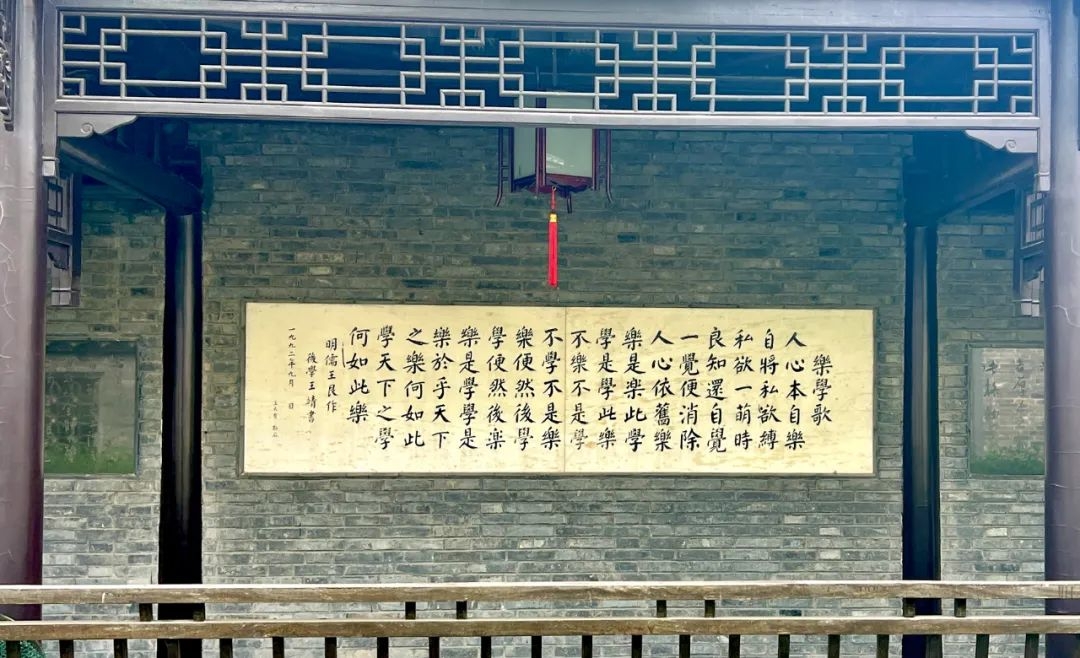 樂學歌
人心本自樂
自將私欲縛
私欲一萌時
良知還自覺
一覺便消除
人心依舊樂
樂是楽此學
學是學此樂
不樂不是學
不學不是樂
樂便然後學
學便然後楽
樂是學學是
樂於乎天下
之樂何如此
學天下之學
何如此樂
明儒王艮作
後學王靖書
一九九二年九月 日